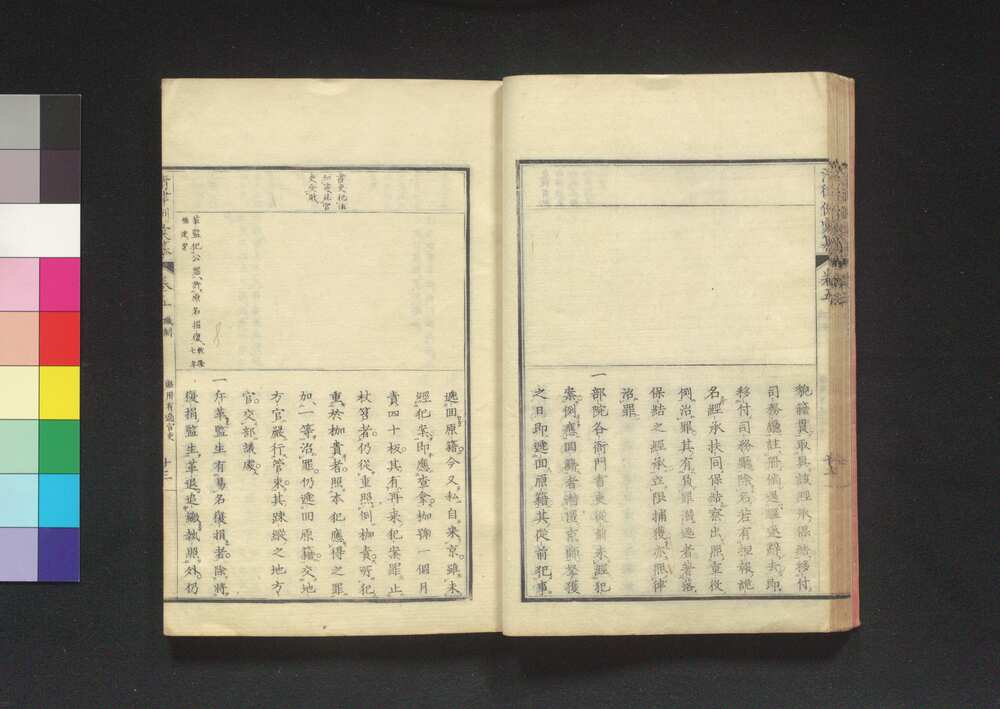 貌籍貫取具該經承保結移付
司務廳註冊倘遇經迯辭去即
移付司務廳除名若有捏報詭
名經承扶同保結察出照重役
例治罪其有負罪潛逃者著落
保結之經承立限捕獲亦照律
治罪
一部院各衙門書吏從前未經犯
案例應回籍者潛匿京師拏獲
之日即遞回原籍其從前犯事
遞回原籍今又私自來京雖未
經犯案即應查拿枷號一個月
責四十板其有再來犯案罪止
杖笞者仍從重照例枷責所犯
重於枷責者照本犯應得之罪
加一等治罪仍遞回原籍交地
方官嚴行管束其疎縱之地方
官交部議處
一斥革監生有易名復捐者除將
復捐監生革退追繳執照外仍
革監犯公罪許原名捐復 乾隆七年
卷五
職制
濫用有過官吏